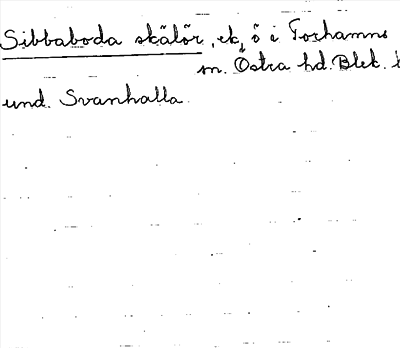 Sibbaboda skälör, ek, ö i Torhamns
sn. Östra hd. Blek. l
und. Svanhalla.